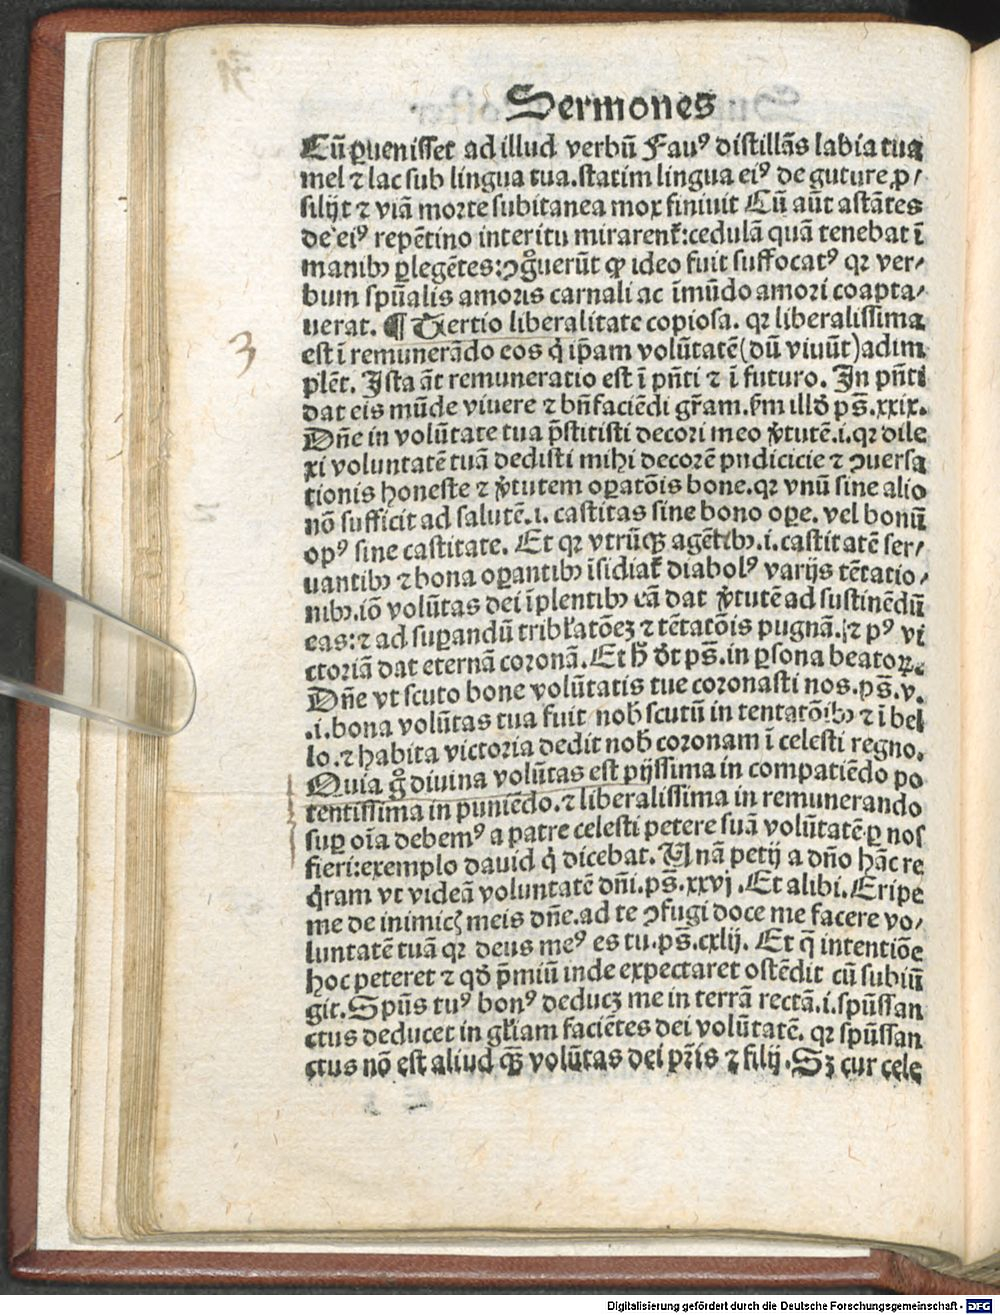 Sermones
Cū ꝑuenisset ad illud verbū Fauꝰ distillās labia tua
mel ⁊ lac sub lingua tua.statim lingua eiꝰ de guture ꝓ/
silijt ⁊ viā morte subitanea mox finiuit Cū aūt astātes
de eiꝰ repētino interitu mirarent̃:cedulā quā tenebat ī
manibꝫ ꝑlegētes:ↄg̊uerūt ꝙ ideo fuit suffocatꝰ qꝛ ver/
bum spūalis amoris carnali ac īmūdo amori coapta/
uerat. ¶ Tertio liberalitate copiosa. qꝛ liberalissima
est ī remunerādo eos q̇ ip̄am volūtatē(dū viuūt)adim
plēt. Ista āt remuneratio est ī pn̄ti ⁊ ī futuro. In pn̄ti
dat eis mūde viuere ⁊ bn̄faciēdi gr̄am.ẜm illḋ pꝰs̄.xxix.
Dn̄e in volūtate tua p̄stitisti decori meo v̾tutē.i.qꝛ dile
xi voluntatē tuā dedisti mihi decorē pudicicie ⁊ ↄuersa
tionis honeste ⁊ v̾tutem oꝑatōis bone.qꝛ vnū sine alio
nō sufficit ad salutē.i. castitas sine bono oꝑe. vel bonū
opꝰ sine castitate. Et qꝛ vtrūqꝫ agētibꝫ.i.castitatē ser/
uantibꝫ ⁊ bona oꝑantibꝫ īsidiat̃ diabolꝰ varijs tētatio/
nibꝫ.iō volūtas dei īplentibꝫ eā dat v̾tutē ad sustinēdū
eas:⁊ ad suꝑandū tribl̃atōeꝫ ⁊ tētatōis pugnā.⁊ pꝰ vi
ctoriā dat eternā coronā.Et h̄ dr̄ ps̄.in ꝑsona beatoꝝ.
Dn̄e vt scuto bone volūtatis tue coronasti nos.ps̄.v.
.i.bona volūtas tua fuit nob̃ scutū in tentatōibꝫ ⁊ ī bel
lo.⁊ habita victoria dedit nob̃ coronam ī celesti regno.
Quia g̊ diuina volūtas est pijssima in compatiēdo po
tentissima in puniēdo.⁊ liberalissima in remunerando
suꝑ oīa debemꝰ a patre celesti petere suā volūtatē ꝑ nos
fieri:exemplo dauid q̇ dicebat. Unā petij a dn̄o hāc re
q̇ram vt videā voluntatē dn̄i.ps̄.xxvj.Et alibi.Eripe
me de inimicꝭ meis dn̄e.ad te ↄfugi doce me facere vo/
luntatē tuā qꝛ deus meꝰ es tu.ps̄.cxlij. Et q̄ intentiōe
hoc peteret ⁊ qḋ p̄miū inde expectaret ostēdit cū subiū
git.Spūs tuꝰ bonꝰ deducꝫ me in terrā rectā.i.spūssan
ctus deducet in gl̃iam faciētes dei volūtatē. qꝛ spūssan
ctus nō est aliud qꝫ̄ volūtas dei pr̄is ⁊ filij.Sꝫ cur cele
3
Digitalisierung gefördert durch die Deutsche Forschungsgemeinschaft - DFG